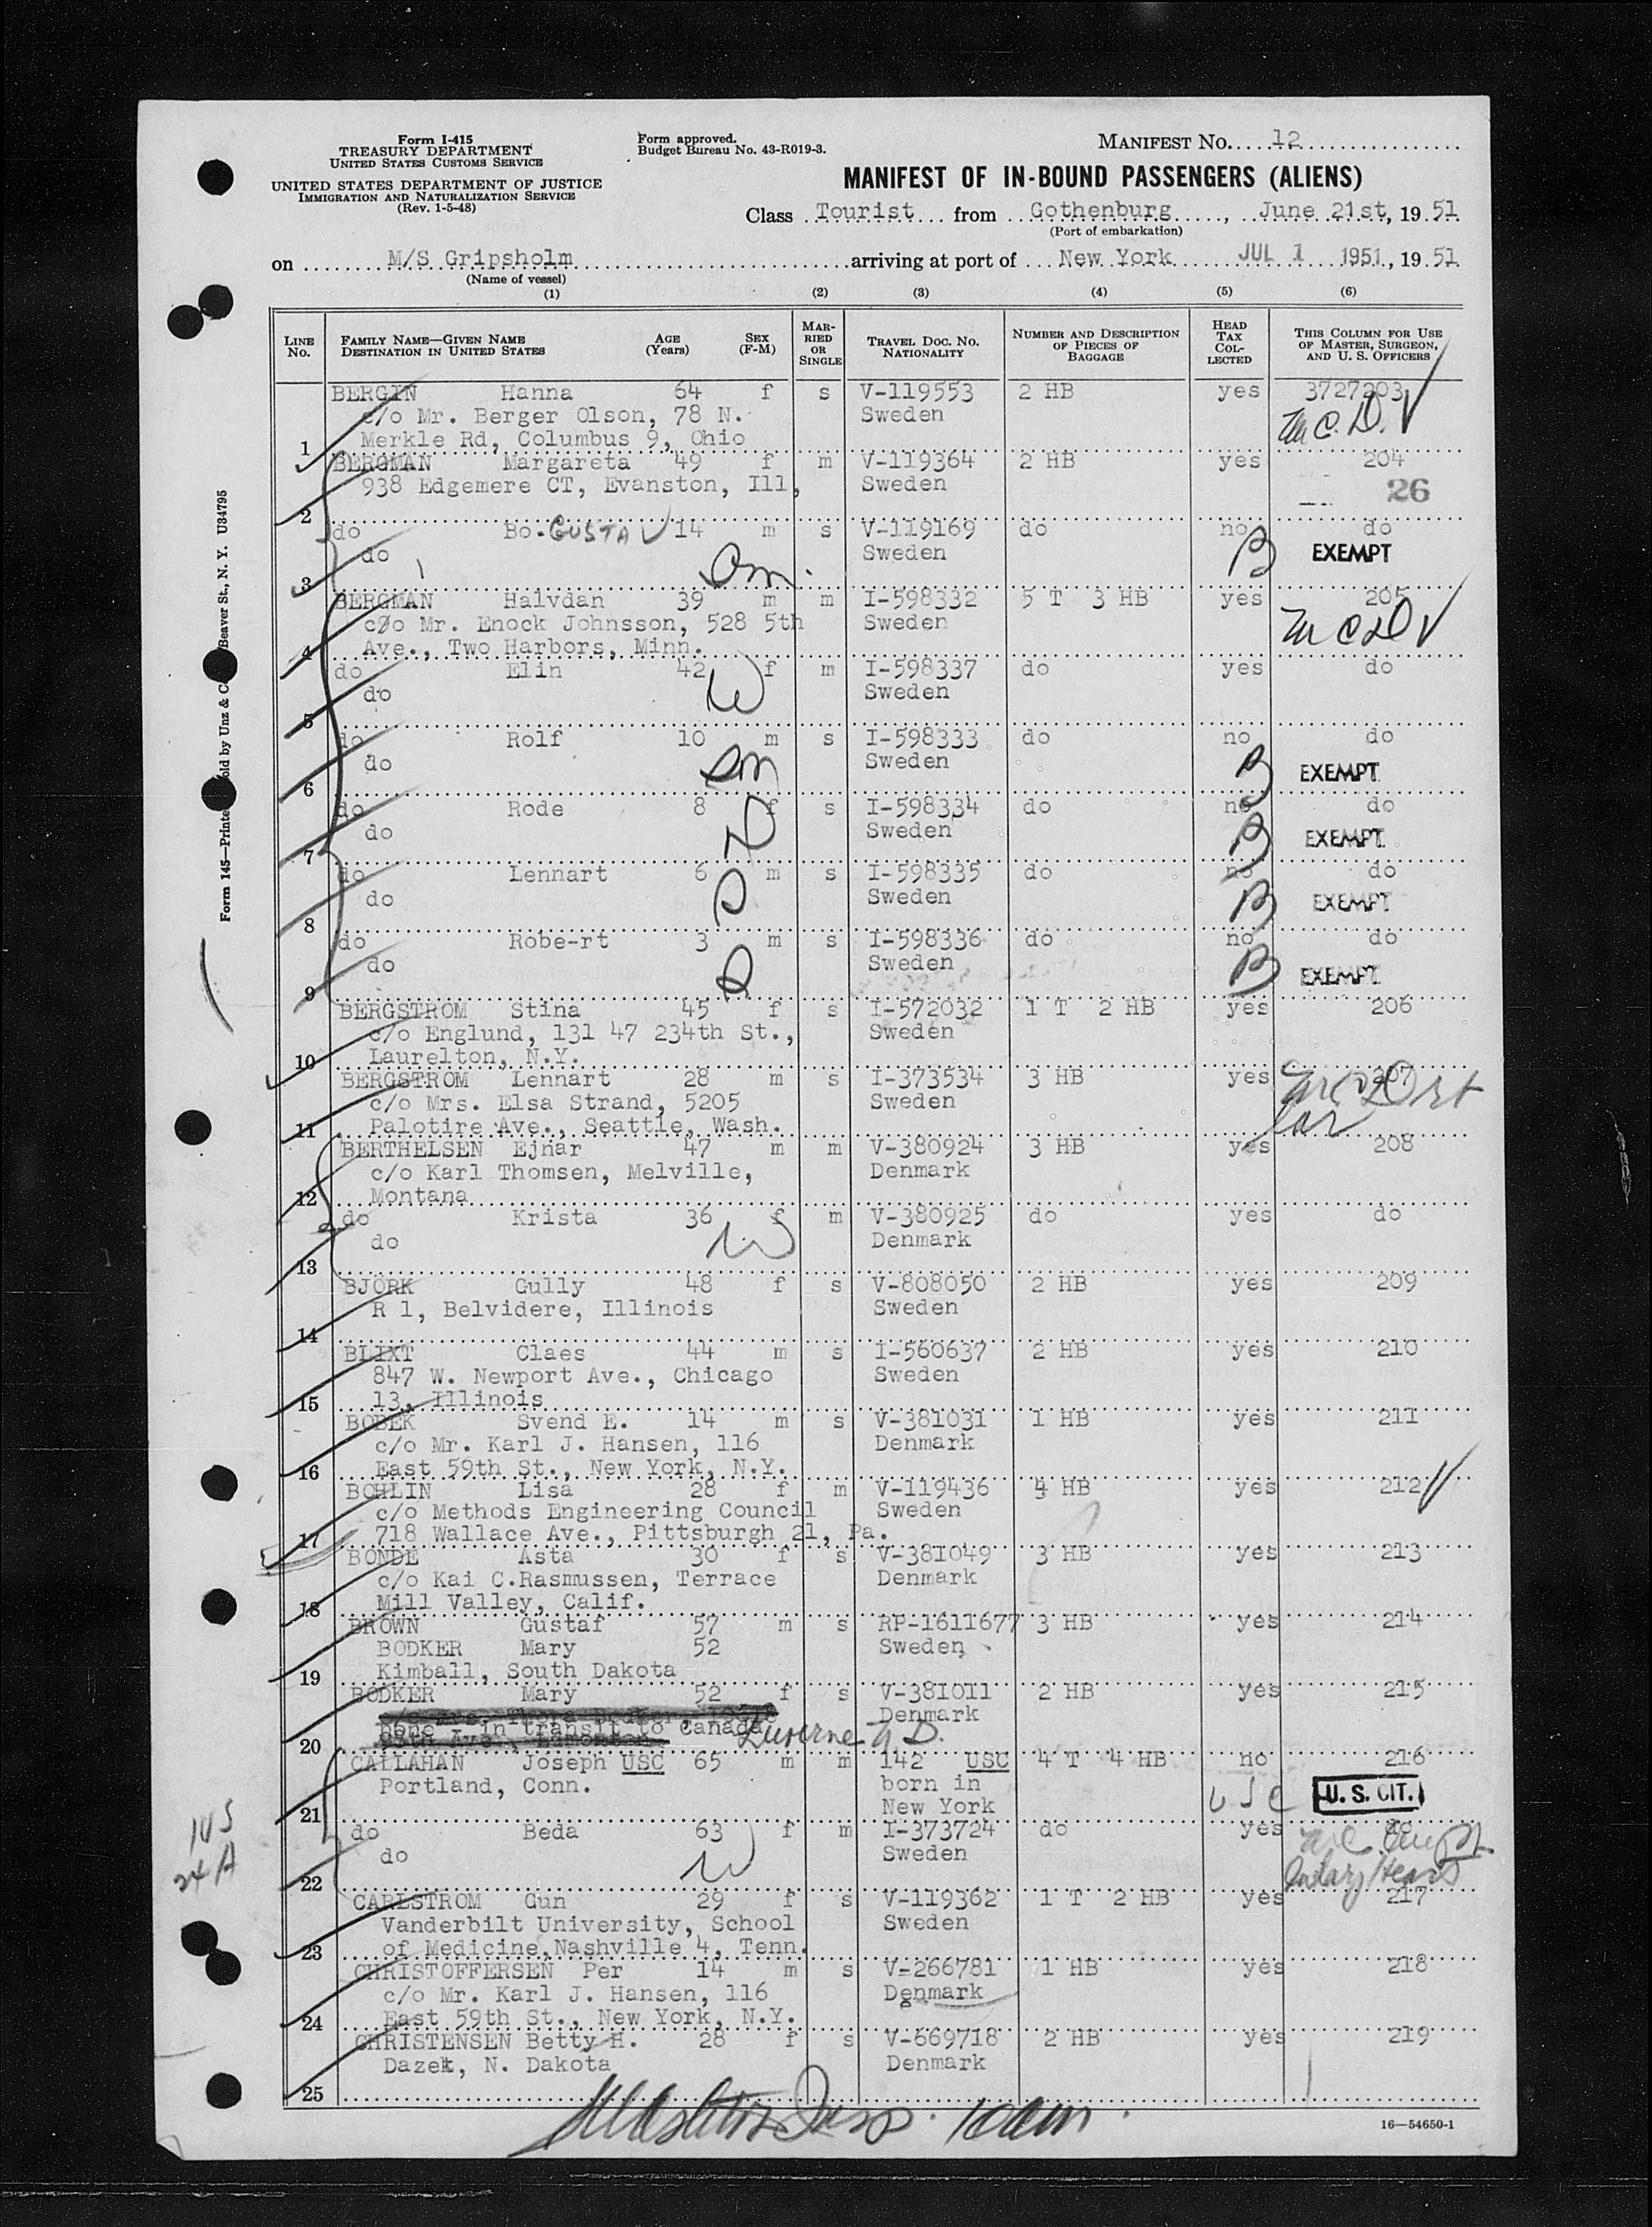 Form I-415
TREASURY DEPARTMENT
UNITED STATES CUSTOMS SERVICE
UNITED STATES DEPARTMENT OF JUSTICE
IMMIGRATION AND NATURALIZATION SERVICE
(Rev. 1-5-48)
Form approved.
Budget Bureau No. 43-R019-3.
MANIFEST No. 12
MANIFEST OF IN-BOUND PASSENGERS (ALIENS)
Class Tourist from Gothenburg, June 21st, 1951
(Port of embarkation)
on M/S Gripsholm arriving at port of New York JUL 1 1951, 1951
(Name of vessel)
(1) (2) (3) (4) (5) (6)
LINE No. FAMILY NAME—GIVEN NAME DESTINATION IN UNITED STATES AGE (Years) SEX (F-M) MARRIED OR SINGLE TRAVEL DOC. NO. NATIONALITY NUMBER AND DESCRIPTION OF PIECES OF BAGGAGE HEAD TAX COLLECTED THIS COLUMN FOR USE OF MASTER, SURGEON, AND U. S. OFFICERS
BERGIN Hanna 64 f s V-119553 2 HB yes 3727203
c/o Mr. Berger Olson, 78 N. Sweden McD.
1 Merkle Rd, Columbus 9, Ohio
BERGMAN Margareta 49 f m V-119364 2 HB yes 204
938 Edgemere CT, Evanston, Ill, Sweden 26
2
do Bo. GUSTAV 14 m s V-119169 do no do
do Sweden B EXEMPT
3
BERGMAN Halvdan 39 m m I-598332 5 T 3 HB yes 205
c/o Mr. Enock Johnsson, 528 5th Sweden McD
4 Ave., Two Harbors, Minn.
do Elin 42 f m I-598337 do yes do
do W Sweden
5
do Rolf 10 m s I-598333 do no do
do Sweden B EXEMPT
6
do Rode 8 f s I-598334 do no do
do D Sweden B EXEMPT
7
do Lennart 6 m s I-598335 do no do
do Sweden B EXEMPT
8
do Robe-rt 3 m s I-598336 do no do
do Sweden B EXEMPT
9
BERGSTROM Stina 45 f s I-572032 1 T 2 HB yes 206
c/o Englund, 131 47 234th St., Sweden
10 Laurelton, N.Y.
BERGSTROM Lennart 28 m s I-373534 3 HB yes 207
c/o Mrs. Elsa Strand, 5205 Sweden
11 Palotire Ave., Seattle, Wash.
BERTHELSEN Ejnar 47 m m V-380924 3 HB yes 208
c/o Karl Thomsen, Melville, Denmark
12 Montana
do Krista 36 f m V-380925 do yes do
do W Denmark
13
BJORK Gully 48 f s V-808050 2 HB yes 209
R 1, Belvidere, Illinois Sweden
14
BLIXT Claes 44 m s I-560637 2 HB yes 210
847 W. Newport Ave., Chicago Sweden
15 13, Illinois
BOBEK Svend E. 14 m s V-381031 1 HB yes 211
c/o Mr. Karl J. Hansen, 116 Denmark
16 East 59th St., New York, N.Y.
BOHLIN Lisa 28 f m V-119436 4 HB yes 212
c/o Methods Engineering Council Sweden
17 718 Wallace Ave., Pittsburgh 21, Pa.
BONDE Asta 30 f s V-381049 3 HB yes 213
c/o Kai C.Rasmussen, Terrace Denmark
18 Mill Valley, Calif.
BROWN Gustaf 57 m s RP-1611677 3 HB yes 214
BODKER Mary 52 Sweden
19 Kimball, South Dakota
BODKER Mary 52 f s V-381011 2 HB yes 215
Denmark
none - in transit to Canada Luverne N D.
20
CALLAHAN Joseph USC 65 m m 142 USC 4 T 4 HB no 216
Portland, Conn. born in USC U. S. CIT.
21 New York
do Beda 63 f m I-373724 do yes do
do W Sweden
22
CARLSTROM Gun 29 f s V-119362 1 T 2 HB yes 217
Vanderbilt University, School Sweden
23 of Medicine,Nashville 4, Tenn.
CHRISTOFFERSEN Per 14 m s V-266781 1 HB yes 218
c/o Mr. Karl J. Hansen, 116 Denmark
24 East 59th St., New York, N.Y.
CHRISTENSEN Betty H. 28 f s V-669718 2 HB yes 219
Dazek, N. Dakota Denmark
25
16—54650-1
Beaver St., N. Y. U34795
Form 145—Printed
old by Unz & C